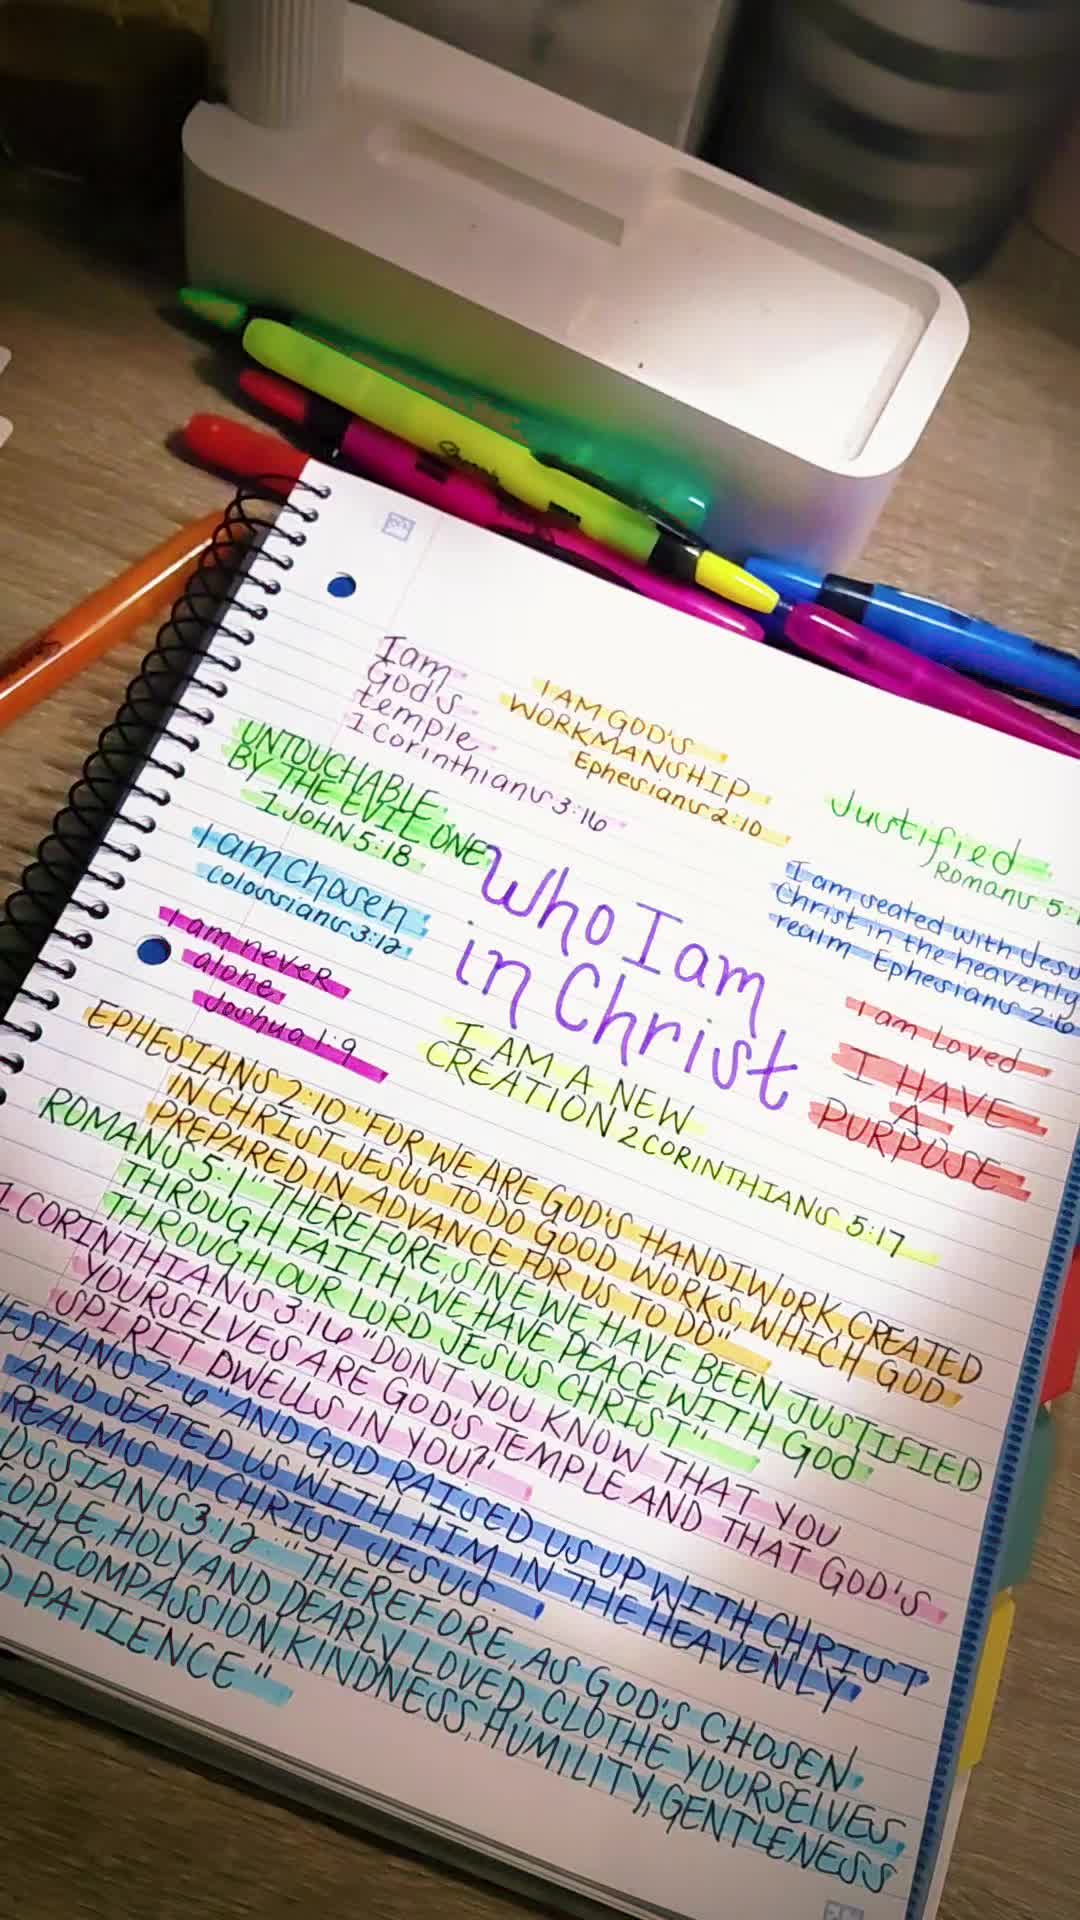 I am
God's
temple
1 Corinthians 3:16
I AM GOD'S
WORKMANSHIP
Ephesians 2:10
UNTOUCHABLE
BY THE EVIL ONE
1 JOHN 5:18
Justified
Romans 5:1
I am chosen
Colossians 3:12
Who I am
in Christ
I am seated with Jesus
Christ in the heavenly
realm Ephesians 2:6
I am never
alone
Joshua 1:9
I am Loved
I HAVE
A
PURPOSE
I AM A NEW
CREATION 2 CORINTHIANS 5:17
EPHESIANS 2:10 "FOR WE ARE GOD'S HANDIWORK CREATED
IN CHRIST JESUS TO DO GOOD WORKS, WHICH GOD
PREPARED IN ADVANCE FOR US TO DO"
ROMANS 5:1 "THEREFORE, SINE WE HAVE BEEN JUSTIFIED
THROUGH FAITH, WE HAVE PEACE WITH GOD
THROUGH OUR LORD JESUS CHRIST"
1 CORINTHIANS 3:16 "DONT YOU KNOW THAT YOU
YOURSELVES ARE GOD'S TEMPLE AND THAT GOD'S
SPIRIT DWELLS IN YOU?"
ESIANS 2:6 "AND GOD RAISED US UP WITH CHRIST
AND SEATED US WITH HIM IN THE HEAVENLY
REALMS IN CHRIST JESUS
OSSIANS 3:12 "THEREFORE, AS GOD'S CHOSEN
EOPLE, HOLY AND DEARLY LOVED, CLOTHE YOURSELVES
TH COMPASSION, KINDNESS, HUMILITY, GENTLENESS
D PATIENCE"